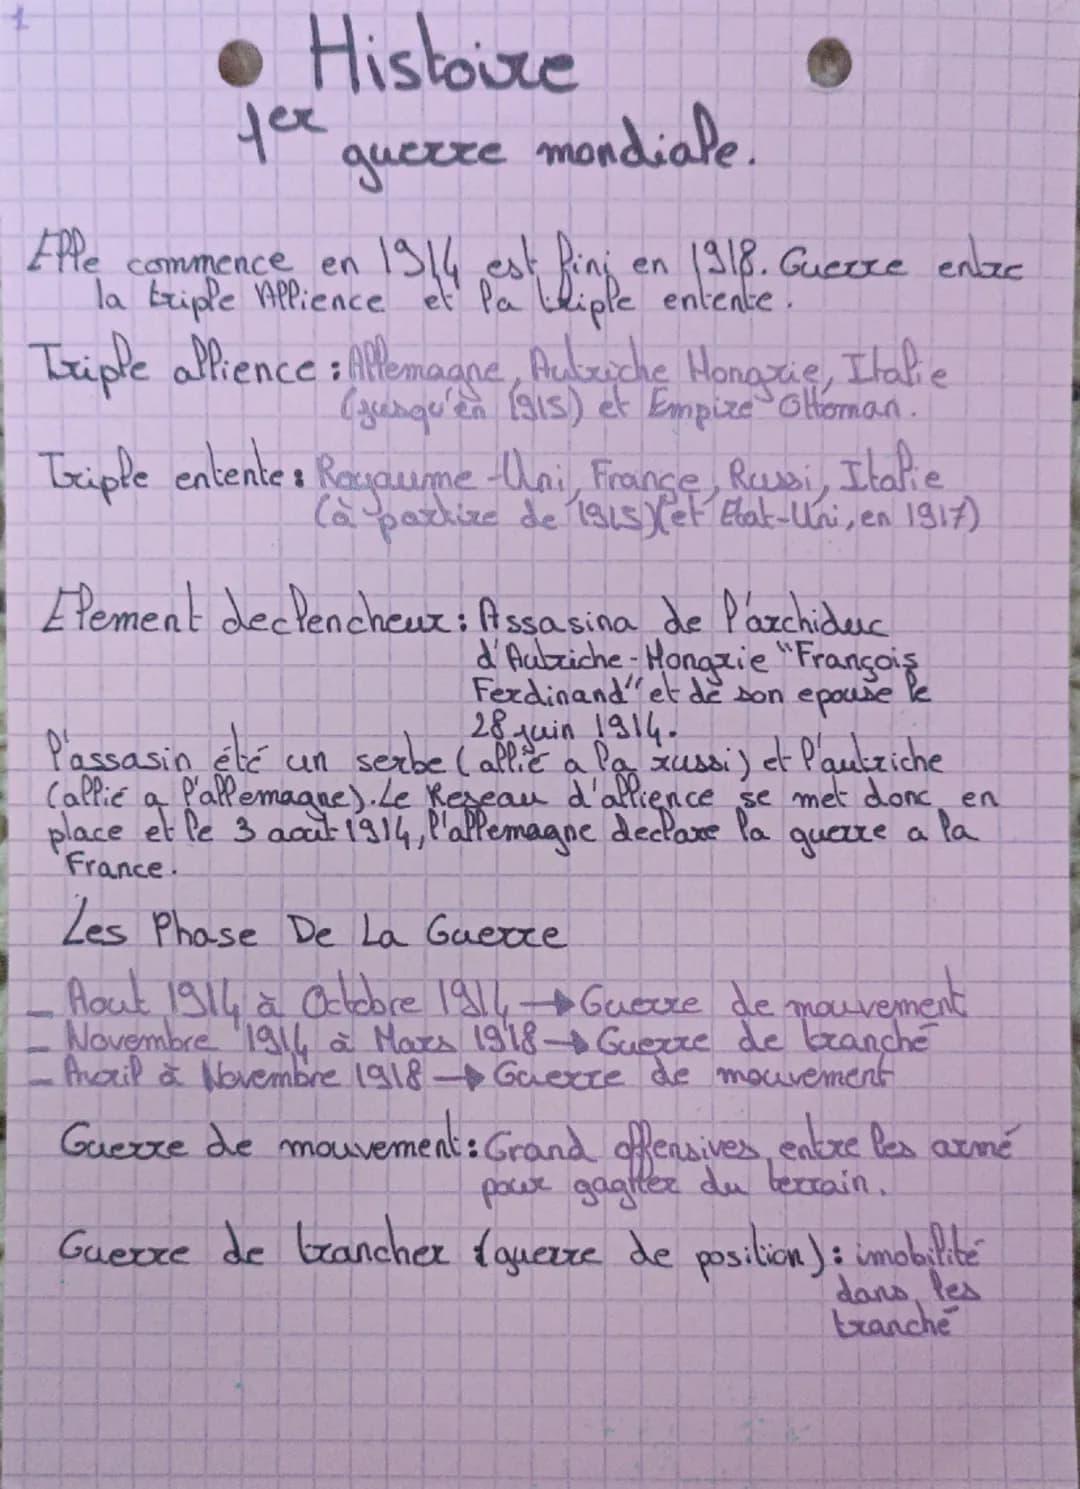 1
Histoire
1er guerre mondiale.
Elle commence en 1914 est fini en 1918. Guerre entre
la triple Allience et la triple entente.
Triple allience : Allemagne, Autriche Hongrie, Italie
(jusqu'en 1915) et Empire Ottoman.
Triple entente : Royaume-Uni, France, Russi, Italie
(à partire de 1915) (et Etat-Uni, en 1917)
Element declencheur : Assasina de l'archiduc
d'Autriche-Hongrie "François
Ferdinand" et de son epouse le
28 juin 1914.
l'assasin été un serbe (allié a la russi) et l'autriche
(allié a l'allemagne). Le Reseau d'allience se met donc en
place et le 3 août 1914, l'allemagne declare la guerre a la
France.
Les Phase De La Guerre
- Aout 1914 à Octobre 1914 → Guerre de mouvement
- Novembre 1914 à Mars 1918 → Guerre de tranché
- Avril à Novembre 1918 → Guerre de mouvement
Guerre de mouvement : Grand offensives entre les armé
pour gagner du terrain.
Guerre de trancher (guerre de position) : imobilité
dans les
tranché